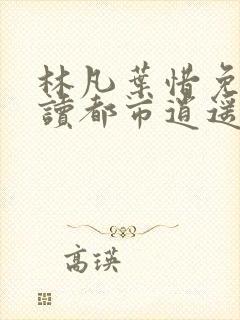 林凡葉惜免
讀都市逍遥
高瑛